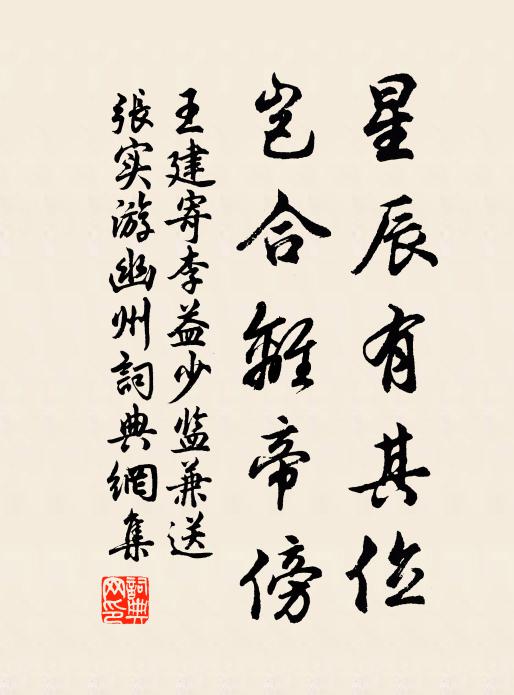 星辰有其位
岂合離帝傍
王建寄李益少监兼送
張实游幽州詞典網集
詞典网印